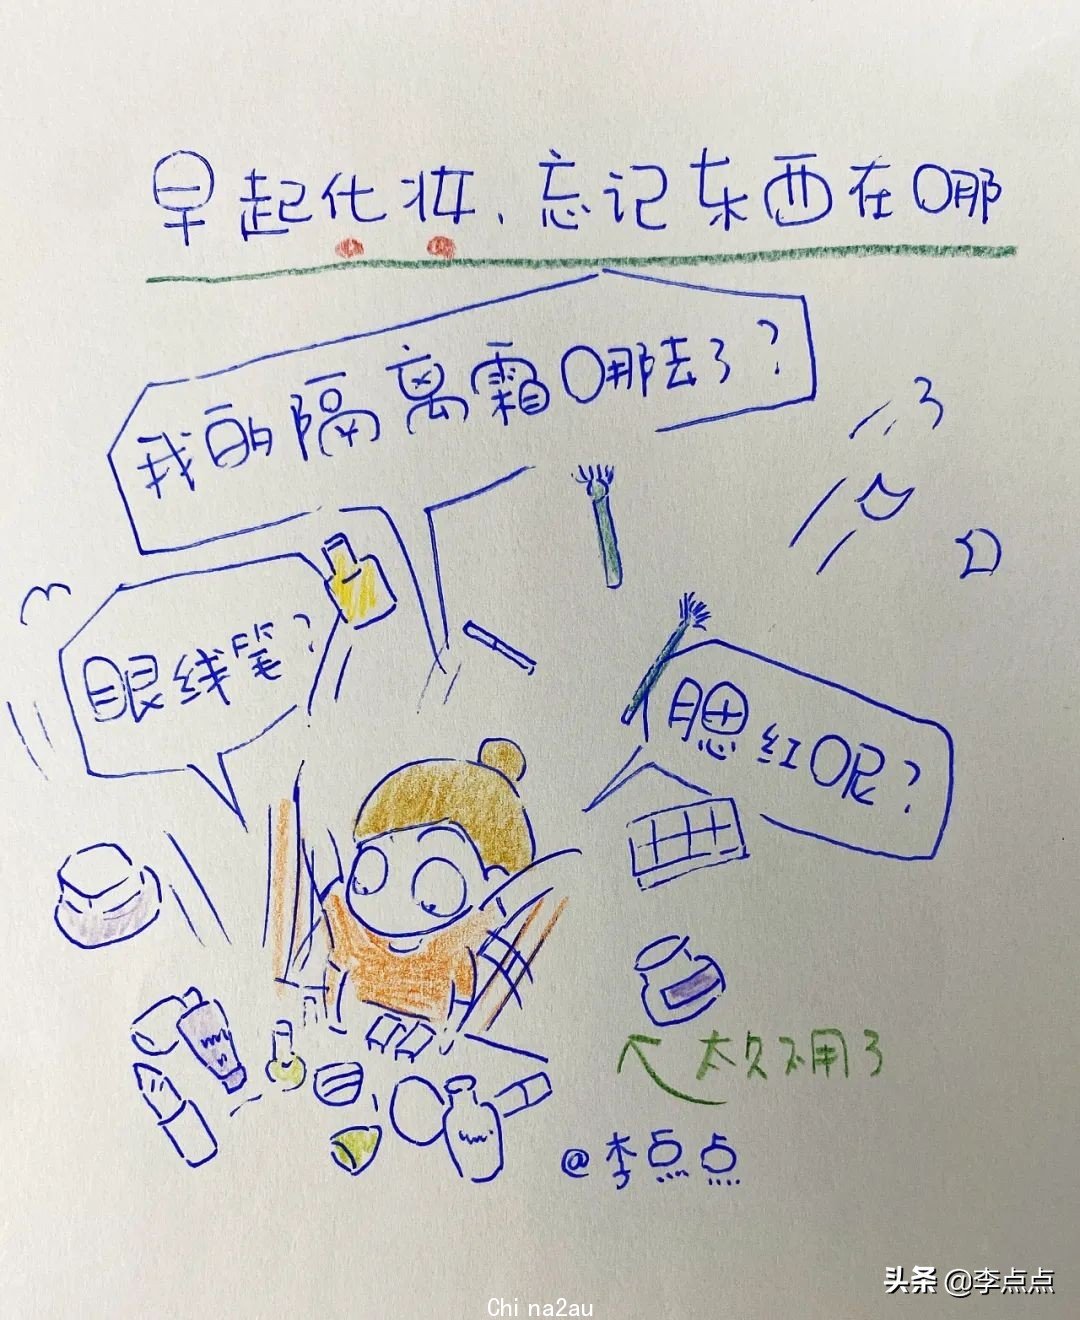 早起化妆、忘记东西在哪
我的隔离霜哪去了？
眼线笔？
腮红呢？
太久不用了
@李点点
头条 @李点点
China2au